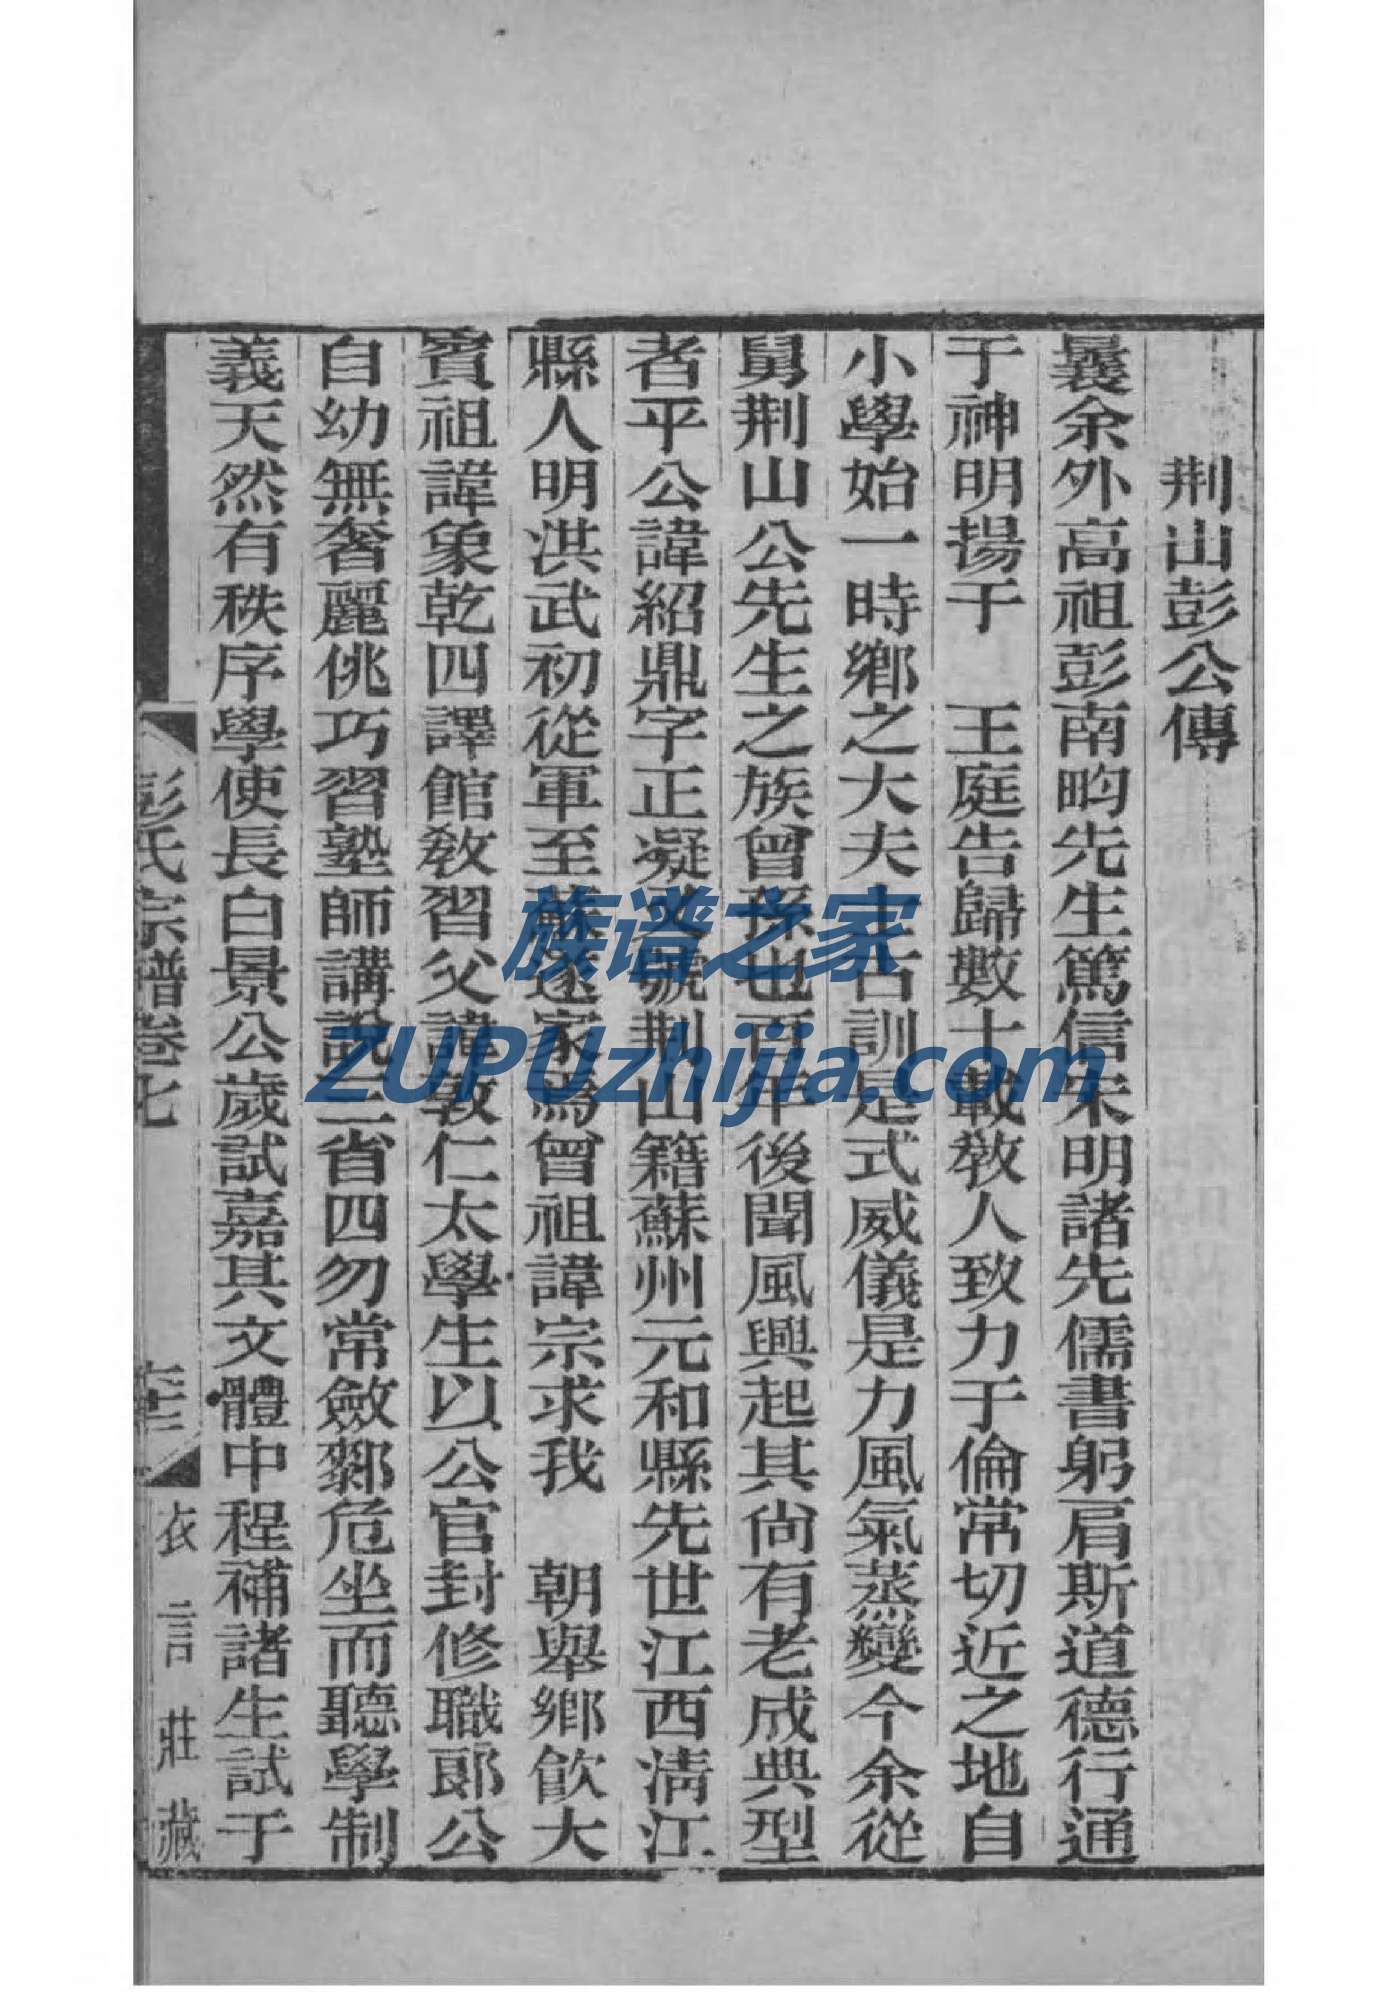 荆山彭公傳
曩余外高祖彭南畇先生篤信宋明諸先儒書躬肩斯道德行通
于神明揚于　王庭告歸數十載敎人致力于倫常切近之地自
小學始一時鄉之大夫士古訓是式威儀是力風氣蒸變今余從
舅荆山公先生之族曾孫也百年後聞風興起其尙有老成典型
者乎公諱紹鼎字正凝又號荆山籍蘇州元和縣先世江西淸江
縣人明洪武初從軍至蘇遂家焉曾祖諱宗求我　朝舉鄉飮大
賓祖諱象乾四譯館敎習父諱敦仁太學生以公官封修職郎公
自幼無奢麗佻巧習塾師講說三省四勿常斂𨛦危坐而聽學制
義天然有秩序學使長白景公歲試嘉其文體中程補諸生試于
彭氏宗譜卷七
衣言莊藏
族谱之家
ZUPUzhijia.com